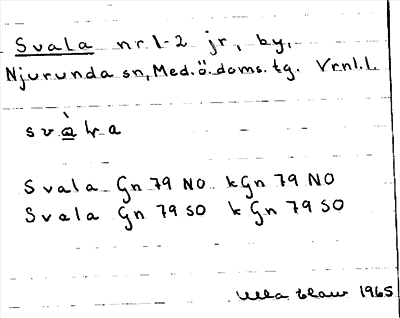 Svala nr 1-2 jr, by,
Njurunda sn, Med. ö. doms. tg. Vrnl. L.
Svala Gn 79 NO kGn 79 NO
Svala Gn 79 SO kGn 79 SO
Ulla 1965